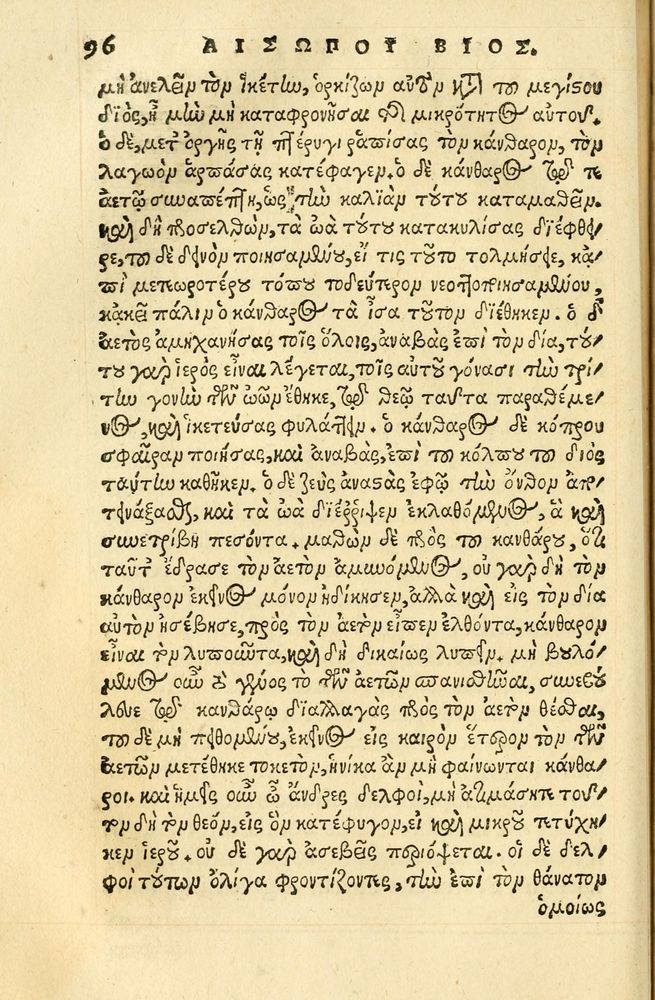 96 ΑΙΣΩΠΟΥ ΒΙΟΣ.
μὴ ἀνελεῖν τὸν ἱκέτην, ὁρκίζων αὐτὸν κατὰ τοῦ μεγίστου
διὸς, ἦ μὴν μὴ καταφρονῆσαι τῆς μικρότητος αὐτοῦ.
ὁ δὲ, μετ' ὀργῆς τῇ πτέρυγι ῥαπίσας τὸν κάνθαρον, τὸν
λαγωὸν ἁρπάσας κατέφαγεν. ὁ δὲ κάνθαρος τῷ τε
ἀετῷ συναπέπτη, ὡς τὴν καλιὰν τούτου καταμαθεῖν.
καὶ δὴ προσελθὼν, τὰ ὠὰ τούτου κατακυλίσας διέφθει/
ρε, τοῦ δὲ δεινὸν ποιησαμένου, εἴ τις τοῦτο τολμήσειε, κἀ/
πὶ μετεωροτέρου τόπου τὸ δεύτερον νεοττοποιησαμένου,
κἀκεῖ πάλιν ὁ κάνθαρος τὰ ἶσα τοῦτον διέθηκεν. ὁ δ'
ἀετὸς ἀμηχανήσας τοῖς ὅλοις, ἀναβὰς ἐπὶ τὸν δία, τού/
του γὰρ ἱερὸς εἶναι λέγεται, τοῖς αὐτοῦ γόνασι τὴν τρί/
την γονὴν τῶν ὠῶν ἔθηκε, τῷ θεῷ ταῦτα παραθέμε/
νος, καὶ ἱκετεύσας φυλάττειν. ὁ κάνθαρος δὲ κόπρου
σφαῖραν ποιήσας, καὶ ἀναβὰς, ἐπὶ τοῦ κόλπου τοῦ διὸς
ταύτην καθῆκεν. ὁ δὲ ζεὺς ἀναστὰς ἐφ' ᾧ τὴν ὄνθον ἀπο/
τινάξασθαι, καὶ τὰ ὠὰ διέρριψεν ἐκλαθόμενος, ἃ καὶ
συνετρίβη πεσόντα. μαθὼν δὲ πρὸς τοῦ κανθάρου, ὅτι
ταῦτ' ἔδρασε τὸν ἀετὸν ἀμυνόμενος, οὐ γὰρ δὴ τὸν
κάνθαρον ἐκεῖνος μόνον ἠδίκησεν, ἀλλὰ καὶ εἰς τὸν δία
αὐτὸν ἠσέβησε, πρὸς τὸν ἀετὸν εἶπεν ἐλθόντα, κάνθαρον
εἶναι τὸν λυποῦντα, καὶ δὴ δικαίως λυπεῖν. μὴ βουλό/
μενος οὖν τὸ γένος τὸ τῶν ἀετῶν σπανισθῆναι, συνεβού
λευε τῷ κανθάρῳ διαλλαγὰς πρὸς τὸν ἀετὸν θέσθαι,
τοῦ δὲ μὴ πειθομένου, ἐκεῖνος εἰς καιρὸν ἕτερον τὸν τῶν
ἀετῶν μετέθηκε τοκετὸν, ἡνίκα ἂν μὴ φαίνωνται κάνθα/
ροι. καὶ ἡμεῖς οὖν ὦ ἄνδρες δελφοὶ, μὴ ἀτιμάσητε τοῦ/
τον δὴ τὸν θεὸν, εἰς ὃν κατέφυγον, εἰ καὶ μικροῦ τετύχη/
κεν ἱεροῦ. οὐ δὲ γὰρ ἀσεβεῖς περιόψεται. οἱ δὲ δελ/
φοὶ τούτων ὀλίγα φροντίζοντες, τὴν ἐπὶ τὸν θάνατον
ὁμοίως